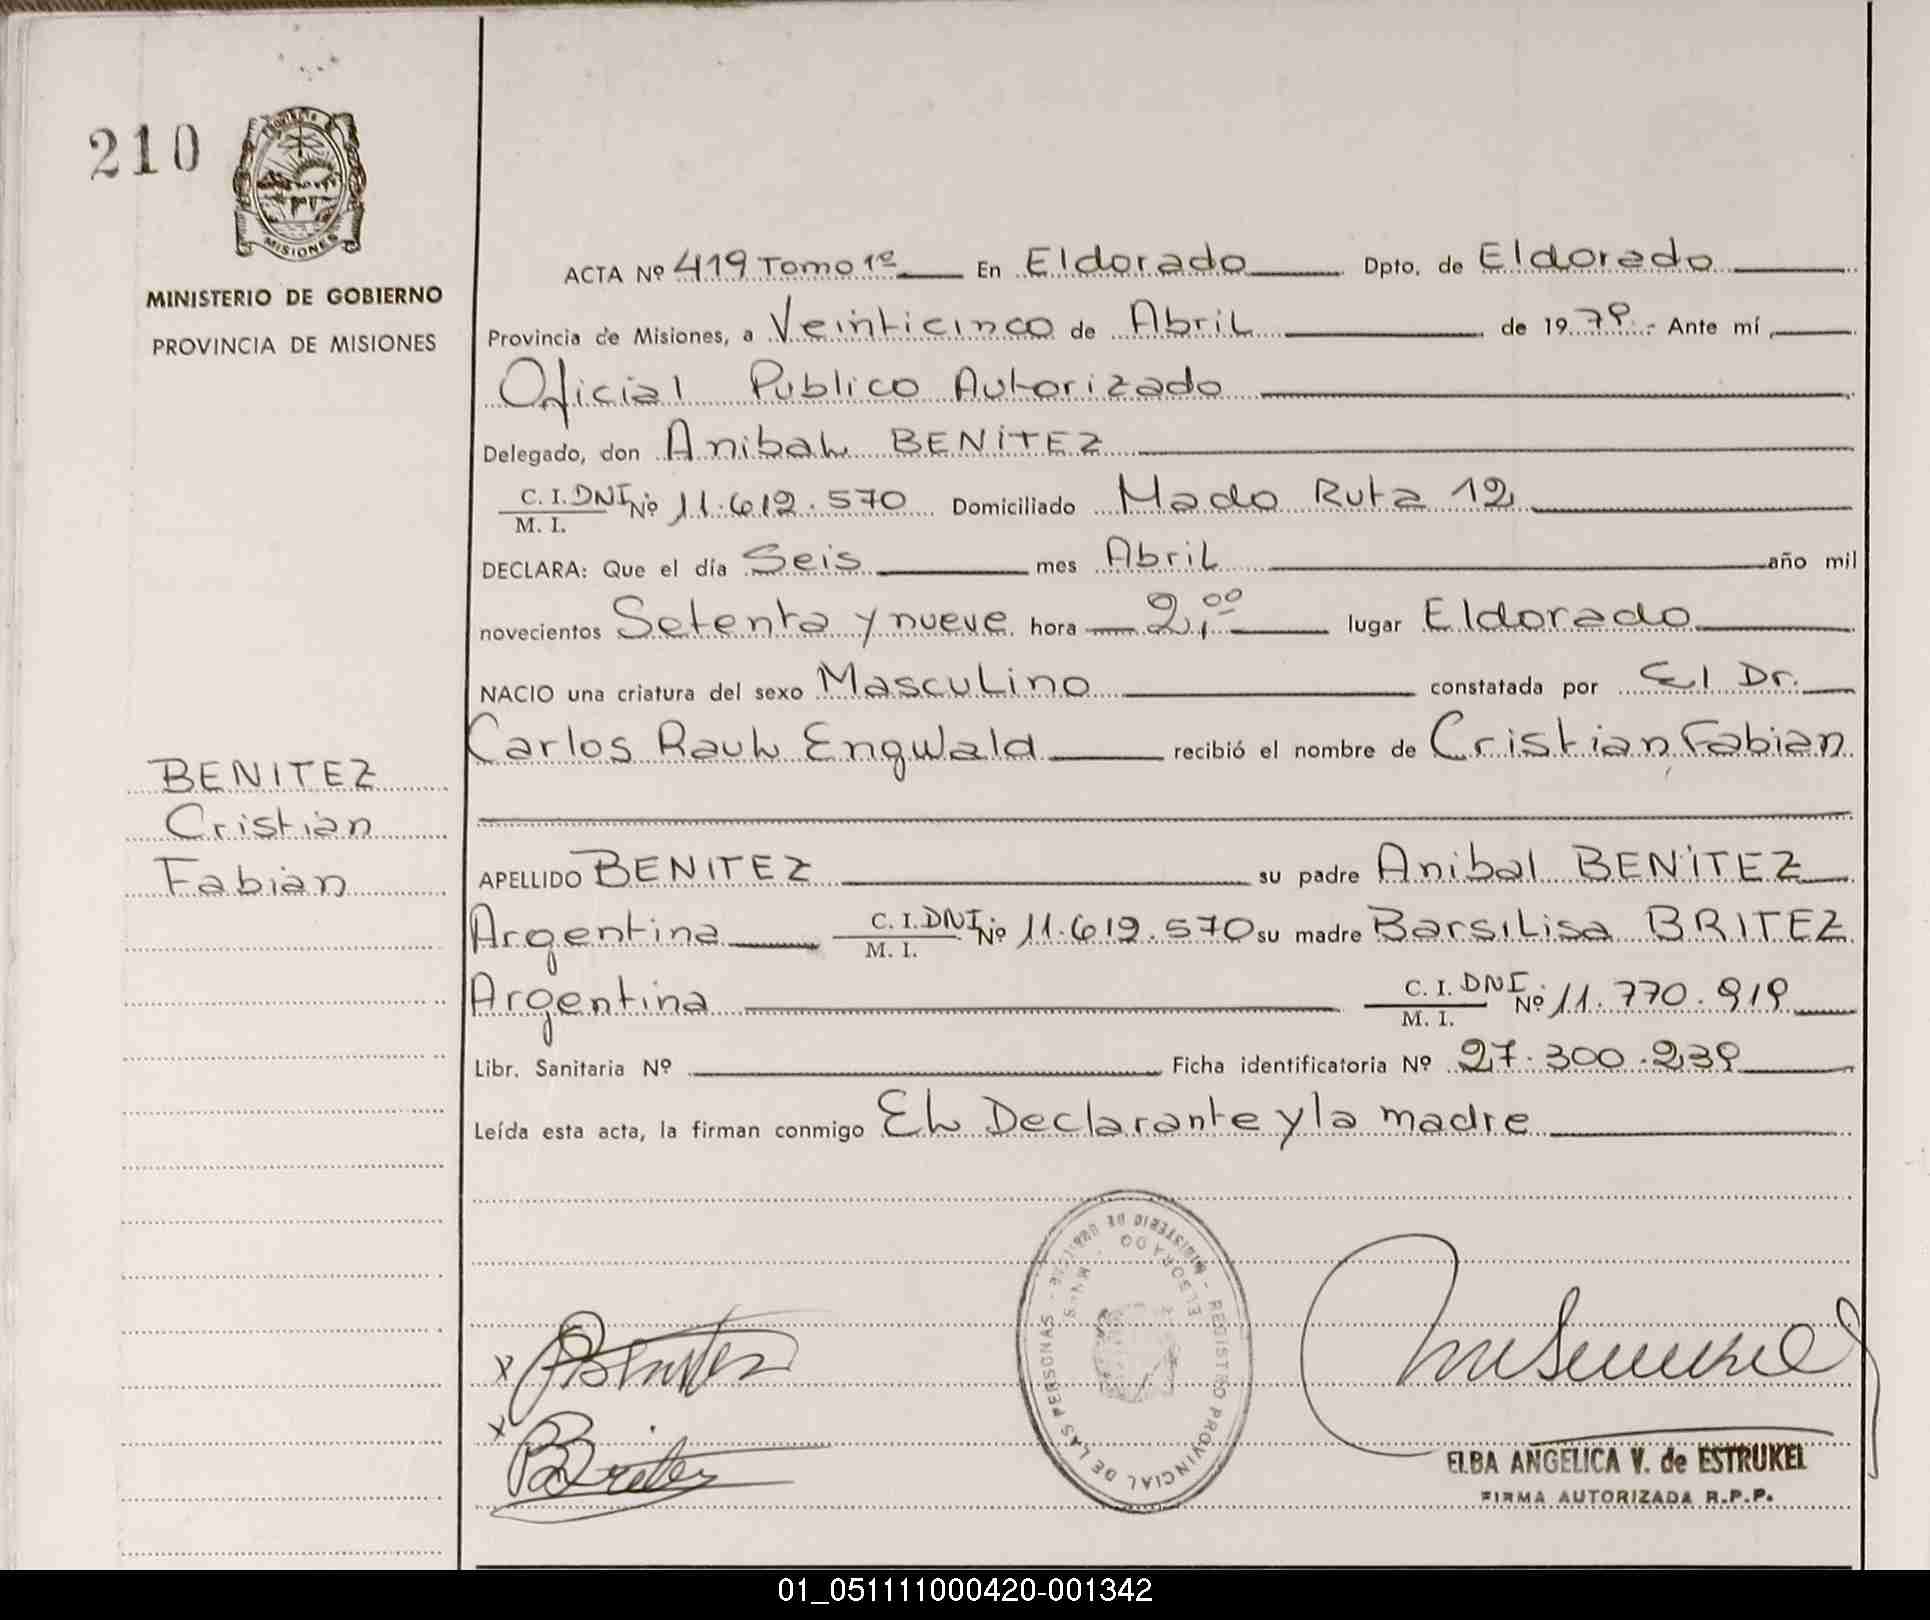 210
MISIONES
MINISTERIO DE GOBIERNO
PROVINCIA DE MISIONES
ACTA Nº 419 Tomo 1º En Eldorado Dpto. de Eldorado
Provincia de Misiones, a Veinticinco de Abril de 1979.- Ante mí,
Oficial Publico Autorizado
Delegado, don Anibal BENITEZ
C. I. DNI Nº 11.612.570 Domiciliado Mado Ruta 12
M. I.
DECLARA: Que el día Seis mes Abril año mil
novecientos Setenta y nueve hora 2,00 lugar Eldorado
NACIO una criatura del sexo Masculino constatada por El Dr.
Carlos Raul Engwald recibió el nombre de Cristian Fabian
BENITEZ
Cristian
Fabian
APELLIDO BENITEZ su padre Anibal BENITEZ
Argentina C. I. DNI Nº 11.612.570 su madre Barsilisa BRITEZ
M. I.
Argentina C. I. DNI Nº 11.770.919
M. I.
Libr. Sanitaria Nº Ficha identificatoria Nº 27.300.239
Leída esta acta, la firman conmigo El Declarante y la madre
MINISTERIO DE GOBIERNO - REGISTRO PROVINCIAL DE LAS PERSONAS -
ELDORADO - MNS
x Benitez
x B Britez
ELBA ANGELICA V. de ESTRUKEL
FIRMA AUTORIZADA R.P.P.
01_051111000420-001342